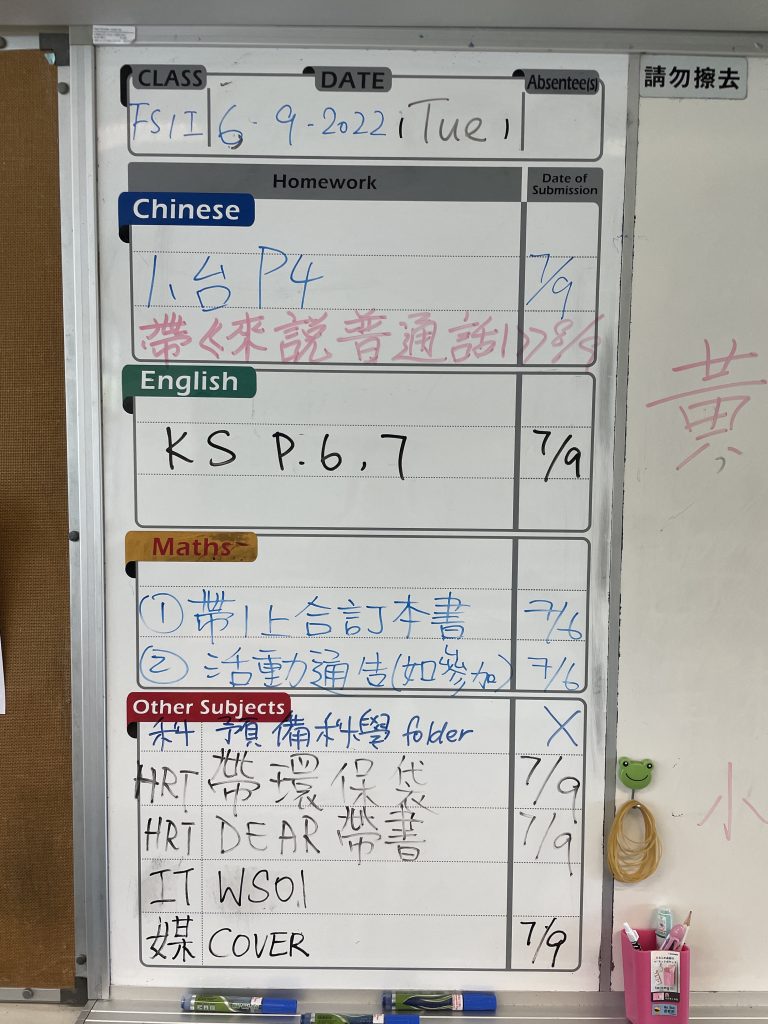 CLASS DATE Absentee(s)
6. 9. 2022 (Tue)
請勿擦去
Homework Date of Submission
Chinese
小台 P4 7/9
帶《來説普通話1》 8/9
English
KS P.6,7 7/9
Maths
① 帶1上合訂本書 7/6
② 活動通告(如參加) 7/6
Other Subjects
科 預備科學 folder X
HRT 帶環保袋 7/9
HRT DEAR 帶書 7/9
IT WS01
媒 COVER 7/9
黃
小